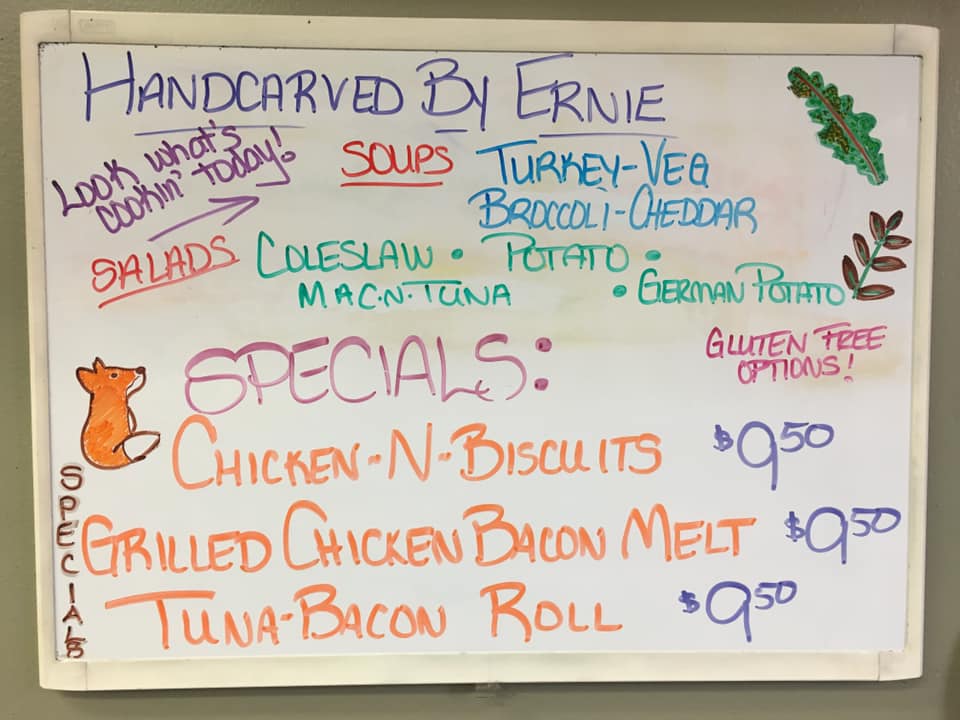 HANDCARVED BY ERNIE
LOOK WHAT'S
COOKIN' TODAY!
SOUPS TURKEY-VEG
BROCCOLI-CHEDDAR
SALADS COLESLAW • POTATO •
MAC-N-TUNA • GERMAN POTATO
GLUTEN FREE
OPTIONS!
SPECIALS:
CHICKEN-N-BISCUITS $9.50
GRILLED CHICKEN BACON MELT $9.50
TUNA-BACON ROLL $9.50
SPECIALS